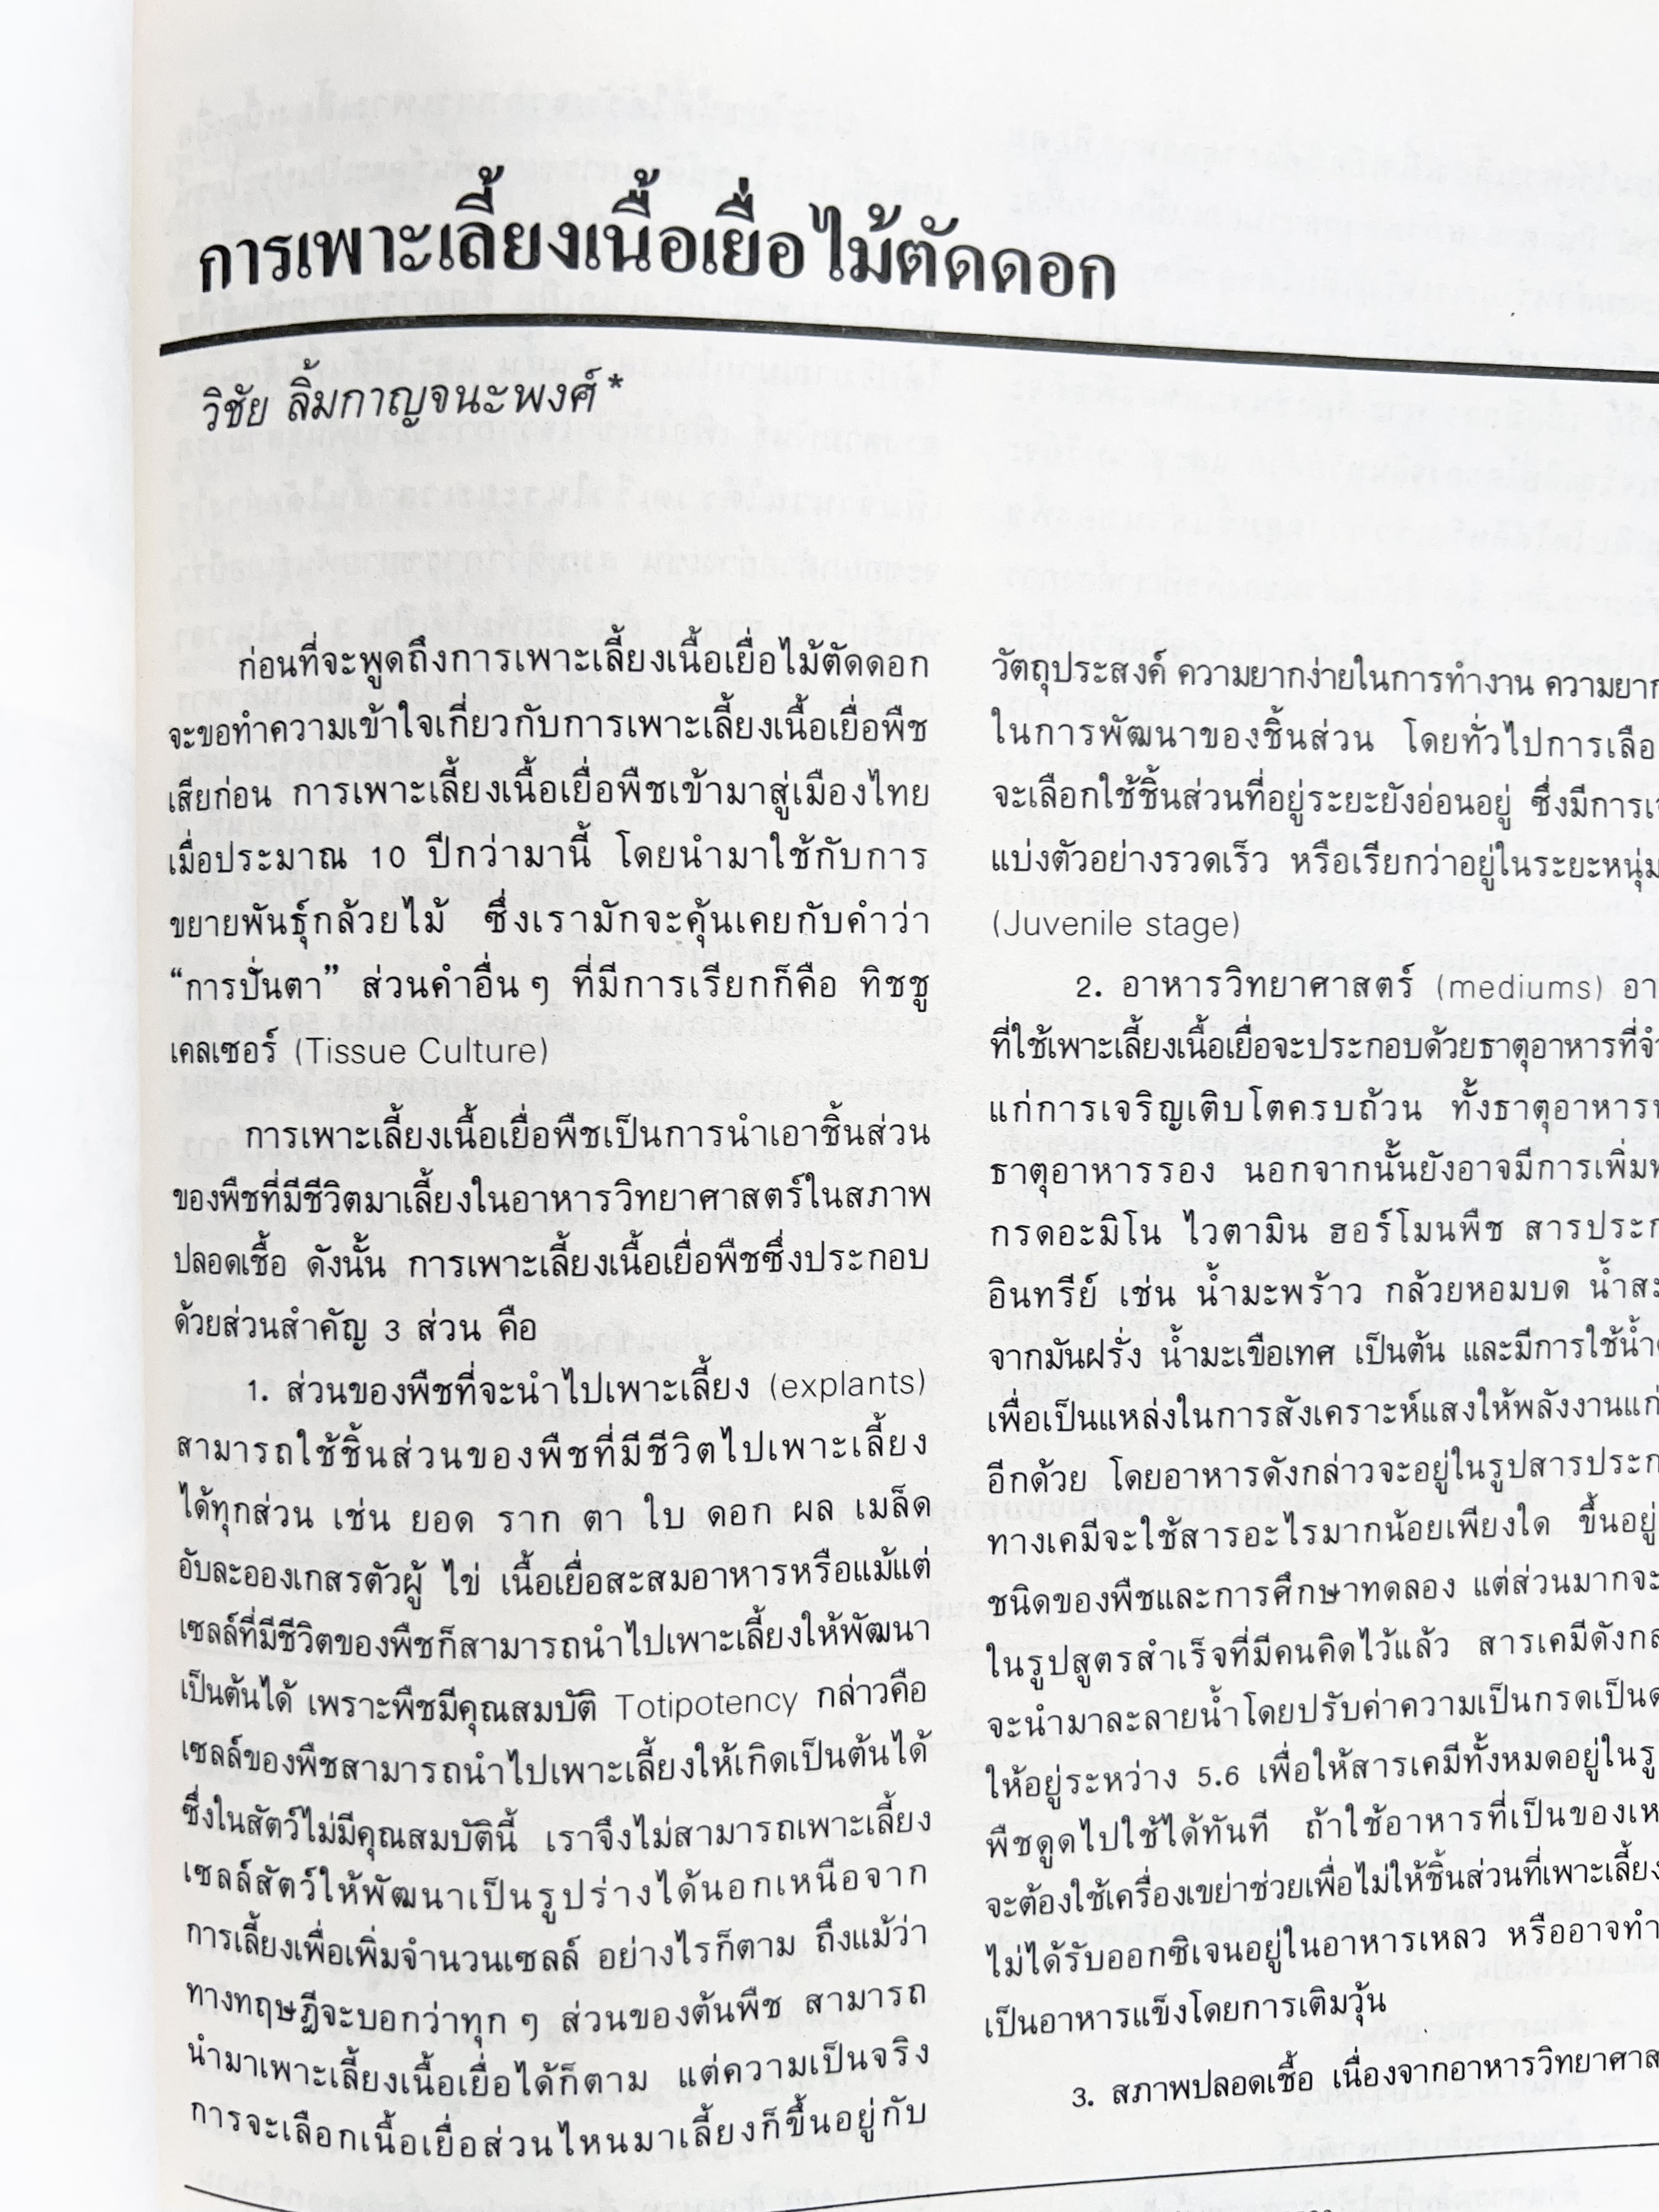 การเพาะเลี้ยงเนื้อเยื่อไม้ตัดดอก
วิชัย ลิ้มกาญจนะพงศ์*
ก่อนที่จะพูดถึงการเพาะเลี้ยงเนื้อเยื่อไม้ตัดดอก
จะขอทำความเข้าใจเกี่ยวกับการเพาะเลี้ยงเนื้อเยื่อพืช
เสียก่อน การเพาะเลี้ยงเนื้อเยื่อพืชเข้ามาสู่เมืองไทย
เมื่อประมาณ 10 ปีกว่ามานี้ โดยนำมาใช้กับการ
ขยายพันธุ์กล้วยไม้ ซึ่งเรามักจะคุ้นเคยกับคำว่า
“การปั่นตา” ส่วนคำอื่น ๆ ที่มีการเรียกก็คือ ทิชชู
เคลเซอร์ (Tissue Culture)
การเพาะเลี้ยงเนื้อเยื่อพืชเป็นการนำเอาชิ้นส่วน
ของพืชที่มีชีวิตมาเลี้ยงในอาหารวิทยาศาสตร์ในสภาพ
ปลอดเชื้อ ดังนั้น การเพาะเลี้ยงเนื้อเยื่อพืชซึ่งประกอบ
ด้วยส่วนสำคัญ 3 ส่วน คือ
1. ส่วนของพืชที่จะนำไปเพาะเลี้ยง (explants)
สามารถใช้ชิ้นส่วนของพืชที่มีชีวิตไปเพาะเลี้ยง
ได้ทุกส่วน เช่น ยอด ราก ตา ใบ ดอก ผล เมล็ด
อับละอองเกสรตัวผู้ ไข่ เนื้อเยื่อสะสมอาหารหรือแม้แต่
เซลล์ที่มีชีวิตของพืชก็สามารถนำไปเพาะเลี้ยงให้พัฒนา
เป็นต้นได้ เพราะพืชมีคุณสมบัติ Totipotency กล่าวคือ
เซลล์ของพืชสามารถนำไปเพาะเลี้ยงให้เกิดเป็นต้นได้
ซึ่งในสัตว์ไม่มีคุณสมบัตินี้ เราจึงไม่สามารถเพาะเลี้ยง
เซลล์สัตว์ให้พัฒนาเป็นรูปร่างได้นอกเหนือจาก
การเลี้ยงเพื่อเพิ่มจำนวนเซลล์ อย่างไรก็ตาม ถึงแม้ว่า
ทางทฤษฎีจะบอกว่าทุก ๆ ส่วนของต้นพืช สามารถ
นำมาเพาะเลี้ยงเนื้อเยื่อได้ก็ตาม แต่ความเป็นจริง
การจะเลือกเนื้อเยื่อส่วนไหนมาเลี้ยงก็ขึ้นอยู่กับ
วัตถุประสงค์ ความยากง่ายในการทำงาน ความยาก
ในการพัฒนาของชิ้นส่วน โดยทั่วไปการเลือ
จะเลือกใช้ชิ้นส่วนที่อยู่ระยะยังอ่อนอยู่ ซึ่งมีการเจ
แบ่งตัวอย่างรวดเร็ว หรือเรียกว่าอยู่ในระยะหนุ่ม
(Juvenile stage)
2. อาหารวิทยาศาสตร์ (mediums) อา
ที่ใช้เพาะเลี้ยงเนื้อเยื่อจะประกอบด้วยธาตุอาหารที่จำ
แก่การเจริญเติบโตครบถ้วน ทั้งธาตุอาหาร
ธาตุอาหารรอง นอกจากนั้นยังอาจมีการเพิ่ม
กรดอะมิโน ไวตามิน ฮอร์โมนพืช สารประก
อินทรีย์ เช่น น้ำมะพร้าว กล้วยหอมบด น้ำสะ
จากมันฝรั่ง น้ำมะเขือเทศ เป็นต้น และมีการใช้น้ำต
เพื่อเป็นแหล่งในการสังเคราะห์แสงให้พลังงานแก่
อีกด้วย โดยอาหารดังกล่าวจะอยู่ในรูปสารประก
ทางเคมีจะใช้สารอะไรมากน้อยเพียงใด ขึ้นอยู่
ชนิดของพืชและการศึกษาทดลอง แต่ส่วนมากจะ
ในรูปสูตรสำเร็จที่มีคนคิดไว้แล้ว สารเคมีดังกล
จะนำมาละลายน้ำโดยปรับค่าความเป็นกรดเป็นด
ให้อยู่ระหว่าง 5.6 เพื่อให้สารเคมีทั้งหมดอยู่ในรู
พืชดูดไปใช้ได้ทันที ถ้าใช้อาหารที่เป็นของเห
จะต้องใช้เครื่องเขย่าช่วยเพื่อไม่ให้ชิ้นส่วนที่เพาะเลี้ยง
ไม่ได้รับออกซิเจนอยู่ในอาหารเหลว หรืออาจทำ
เป็นอาหารแข็งโดยการเติมวุ้น
3. สภาพปลอดเชื้อ เนื่องจากอาหารวิทยาศาส